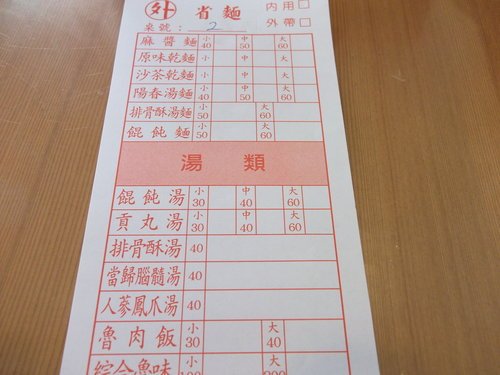 外 省 麵 內用□
桌號：2 外帶□
麻醬麵 小40 中50 大60
原味乾麵 小 中 大
沙茶乾麵 小 中 大
陽春湯麵 小40 中50 大60
排骨酥湯麵 小50 大60
餛飩麵 小50 大60
湯類
餛飩湯 小30 中40 大60
貢丸湯 小30 中40 大60
排骨酥湯 40
當歸腦髓湯 40
人蔘鳳爪湯 40
魯肉飯 小30 大40
綜合魯味 小100 大200